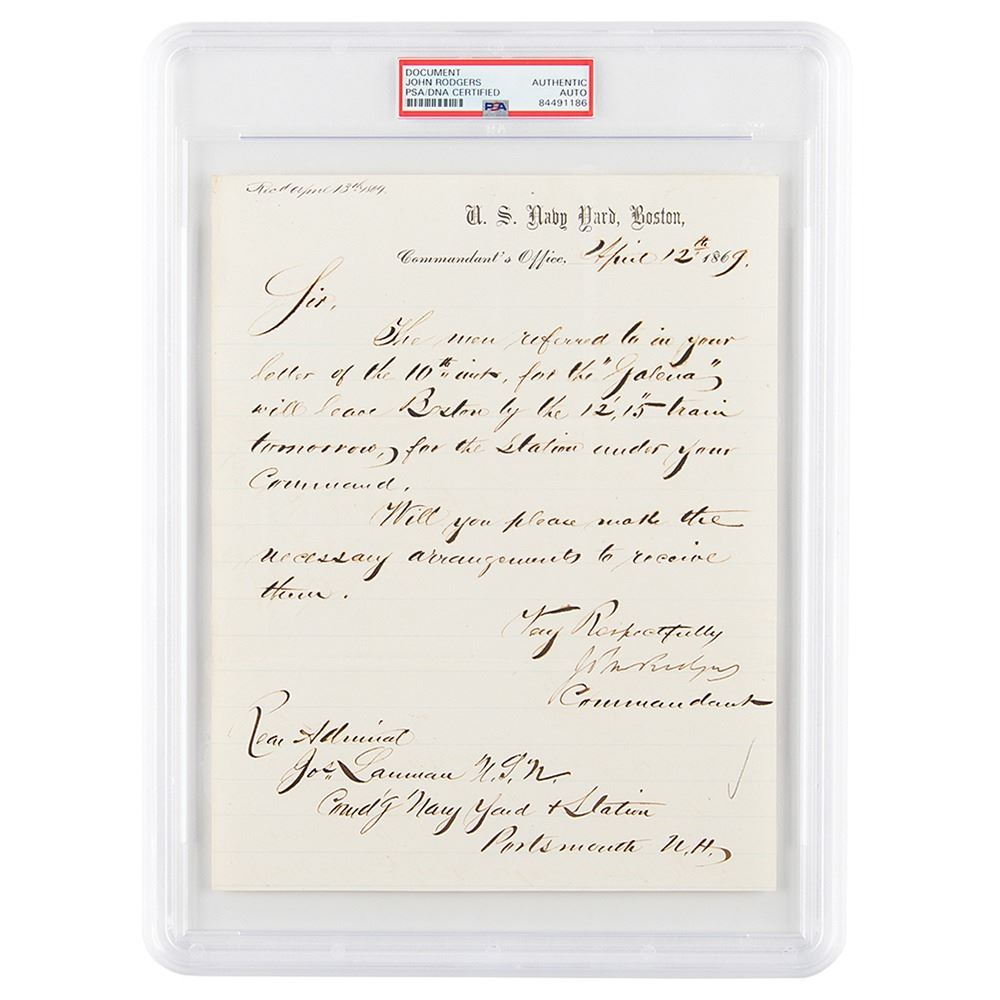 DOCUMENT
JOHN RODGERS
PSA/DNA CERTIFIED
AUTHENTIC
AUTO
84491186
PSA
Recd April 13th 1869.
U. S. Navy Yard, Boston,
Commandant's Office, April 12th 1869.
Sir,
The men referred to in your
letter of the 10th inst, for the "Galena"
will leave Boston by the 12',15" train
tomorrow, for the Station under your
Command.
Will you please make the
necessary arrangements to receive
them.
Very Respectfully
John Rodgers
Commandant
Rear Admiral
Jos. Lanman U.S.N.
Comd'g Navy Yard & Station
Portsmouth N.H.